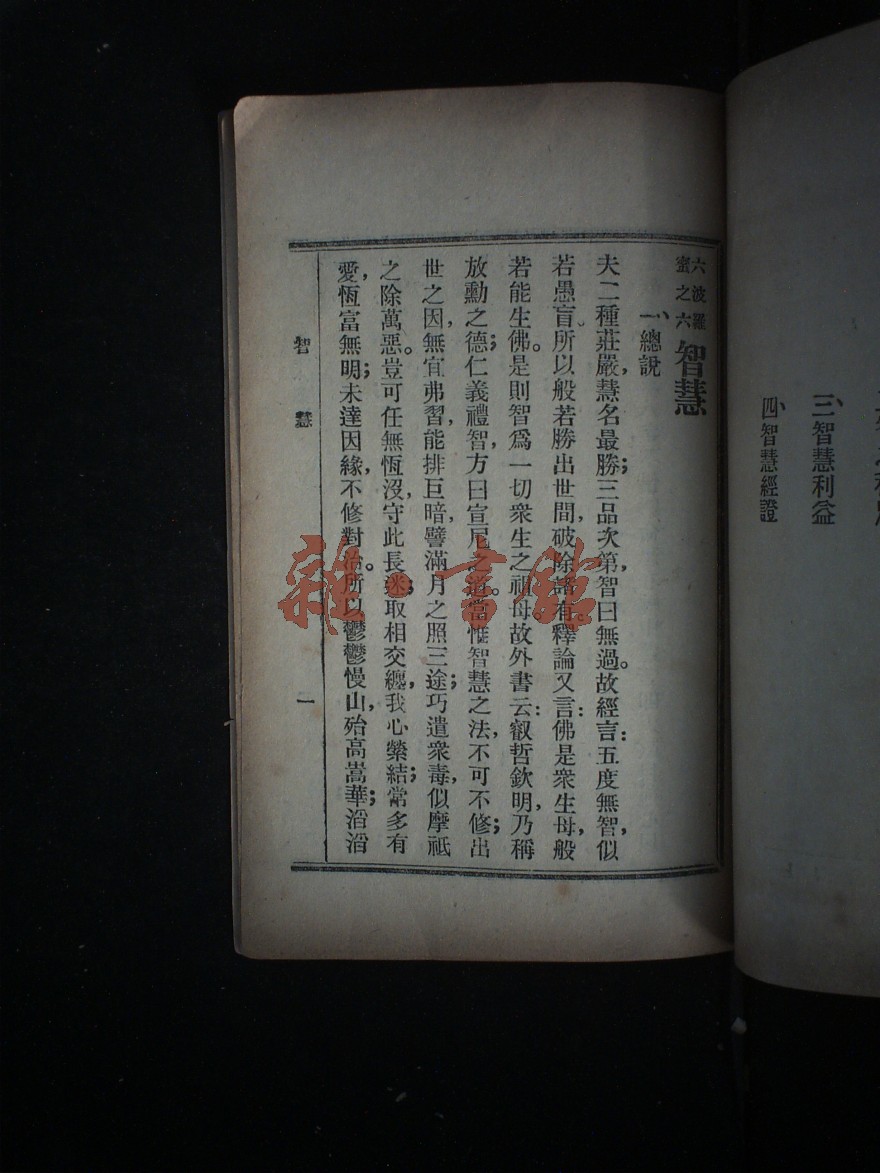 三、智慧利益
四、智慧經證
六波羅
蜜之六
智慧
一、總說
夫二種莊嚴,慧名最勝;三品次第,智曰無過。故經言:五度無智,似
若愚盲所以般若勝出世間,破除諸有。釋論又言:佛是衆生母,般
若能生佛。是則智爲一切衆生之祖母。故外書云:叡哲欽明,乃稱
放勳之德;仁義禮智,方曰宣尼之道。當惟智慧之法,不可不修;出
世之因,無宜弗習,能排巨暗,譬滿月之照三途;巧遣衆毒,似摩祇
之除萬惡。豈可任無恆沒,守此長迷;取相交纏,我心縈結;常多有
愛,恆富無明;未達因緣,不修對治。所以鬱鬱慢山,殆高嵩華;滔滔
智慧
一
雜·書館